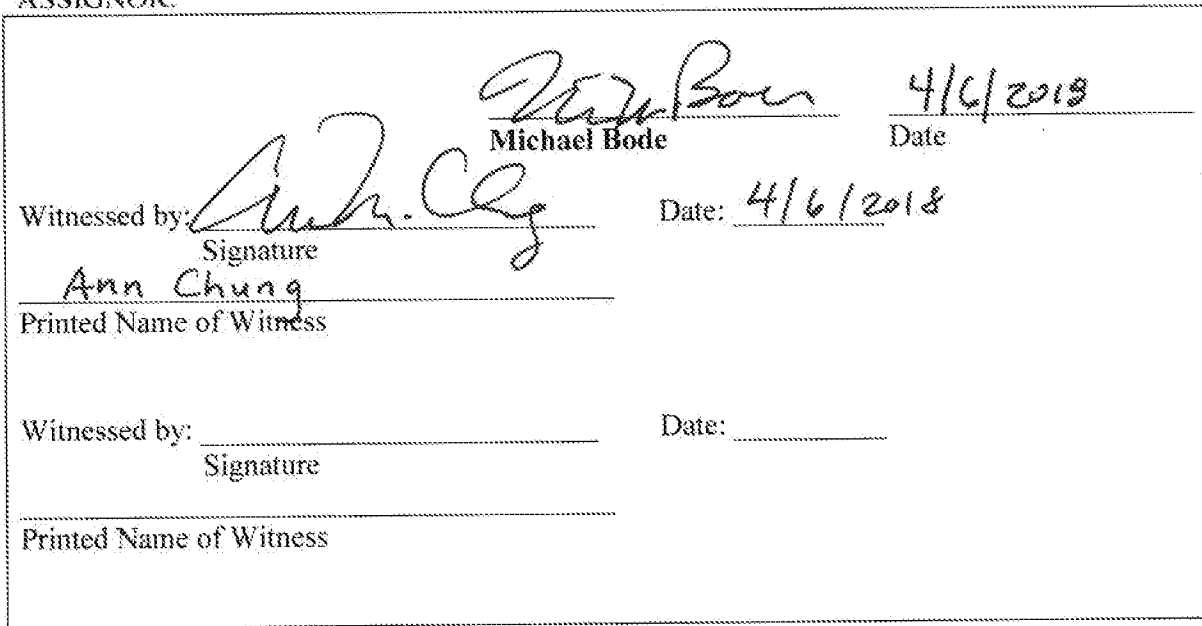 ASSIGNOR:
4/6/2018
Michael Bode Date
Witnessed by: Date: 4/6/2018
Signature
Ann Chung
Printed Name of Witness
Witnessed by: Date:
Signature
Printed Name of Witness